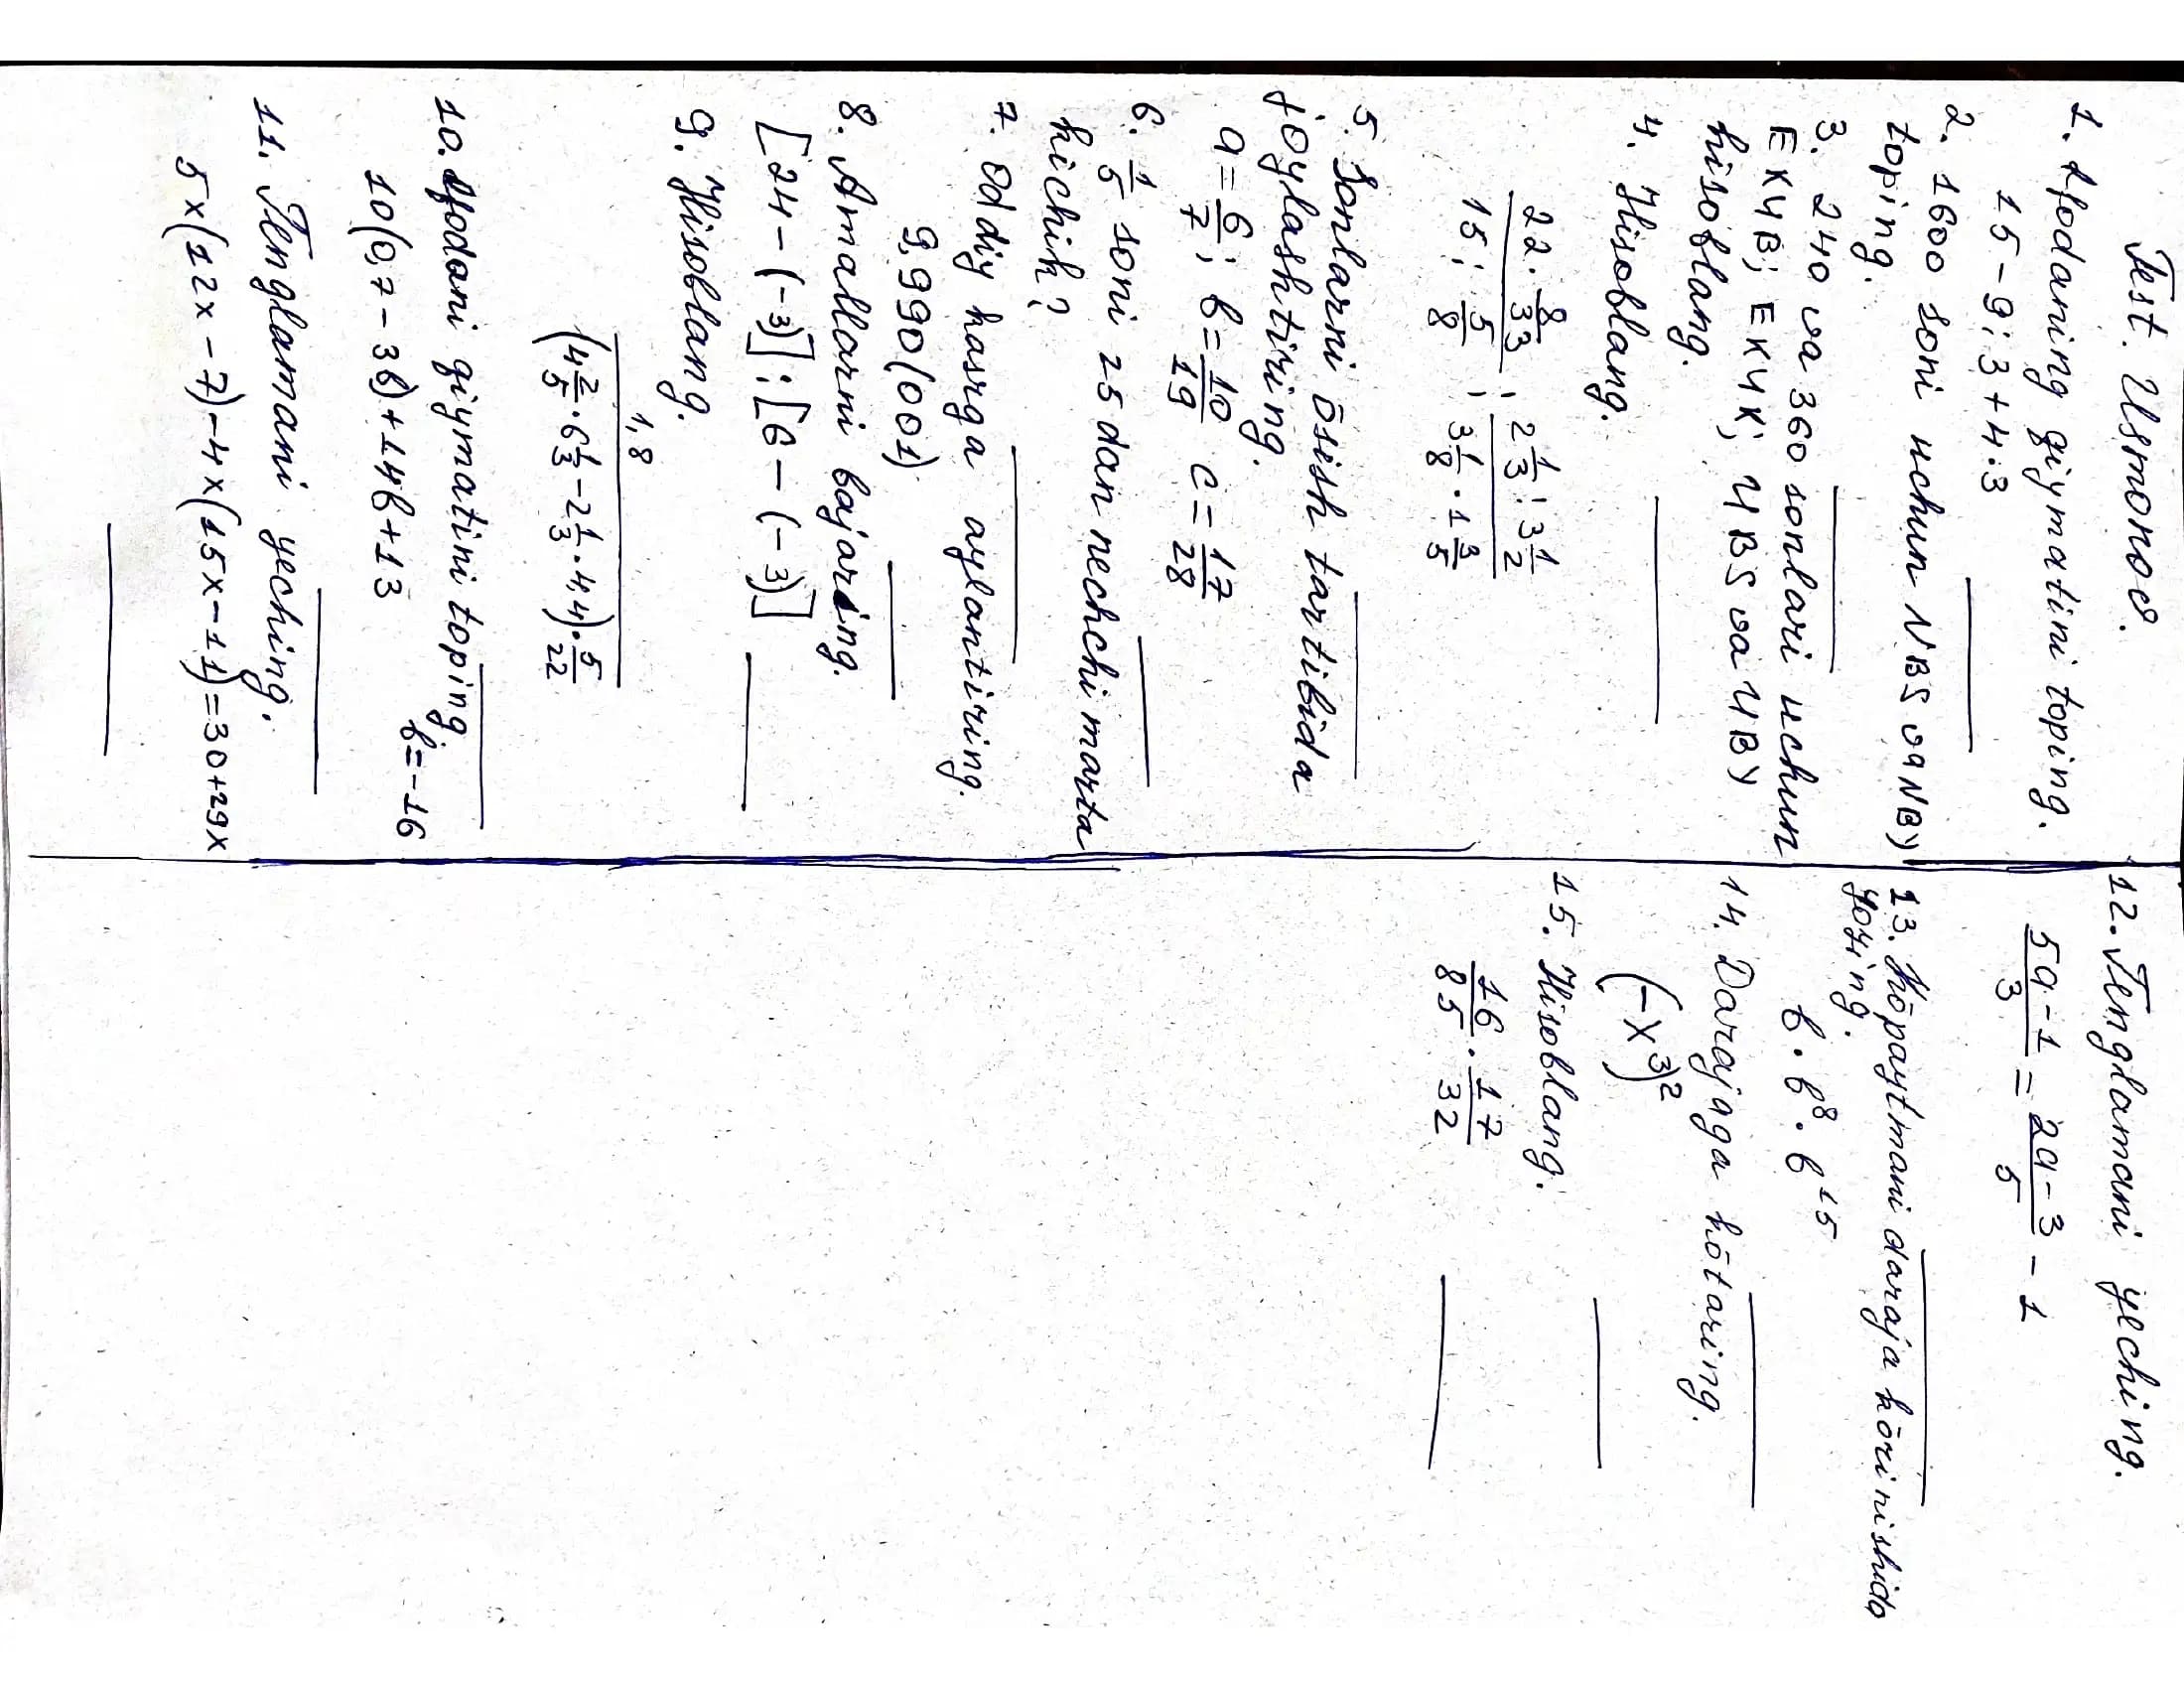 Test. Usmonov.
1. Ifodaning qiymatini toping.
15-9:3+4·3
2. 1600 soni uchun NBS va NBY
toping.
3. 240 va 360 sonlari uchun
EKUB; EKUK; UBS va UBY
hisoblang.
4. Hisoblang.
22·8/33 / 15:5/8 : 2 1/3:3 1/2 / 3 1/8·1 3/5
5. Sonlarni õsish tartibida
joylashtiring.
a=6/7; b=10/19 c=17/28
6. 1/5 soni 25 dan nechchi marta
kichik?
7. Oddiy kasrga aylantiring.
9,990(001)
8. Amallarni bajaring.
[24-(-3)]:[6-(-3)]
9. Hisoblang.
1,8 / (4 2/5·6 1/3-2 1/3·4,4)·5/22
10. Ifodani qiymatini toping.
10(0,7-3b)+14b+13 b=-16
11. Tenglamani yeching.
5x(12x-7)-4x(15x-11)=30+29x
12. Tenglamani yeching.
5a-1/3=2a-3/5-1
13. Kõpaytmani daraja kõrinishida
yozing.
b·b⁸·b¹⁵
14. Darajaga kõtaring.
(-x³)²
15. Hisoblang.
16/85·17/32